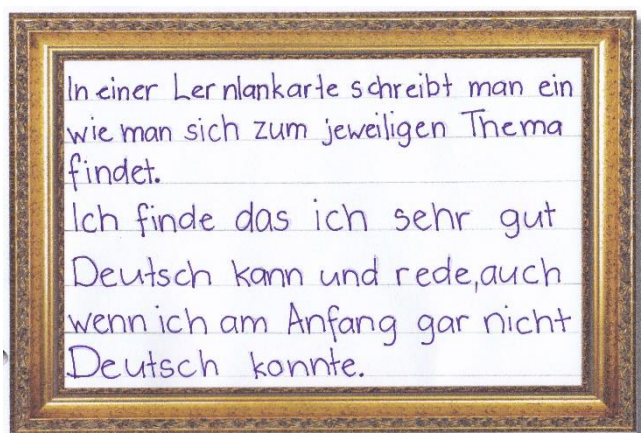 In einer Lernlankarte schreibt man ein
wie man sich zum jeweiligen Thema
findet.
Ich finde das ich sehr gut
Deutsch kann und rede, auch
wenn ich am Anfang gar nicht
Deutsch konnte.